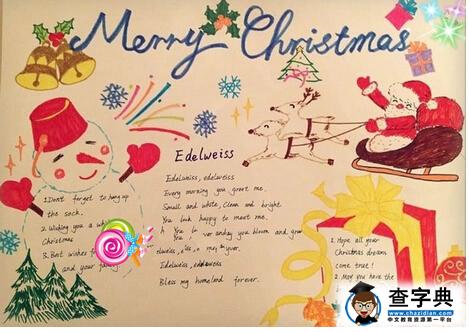 Merry Christmas
Edelweiss
1. Don't forget to hang up
the sock.
2. Wishing you a
Christmas
3. Best wishes
and your
Edelweiss, edelweiss
Every morning you greet me.
Small and white, clean and bright
You look happy to meet me.
you bloom and grow
Edelweiss, edelweiss
Bless my homeland forever.
1. Hope all your
Christmas dreams
come true!
2. May you have the
查字典
www.chazidian.com
中文教育资源第一平台